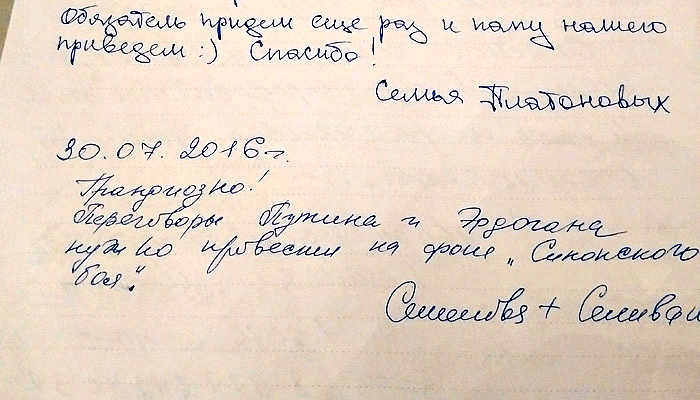 Обязатель придем еще раз и папу нашего
приведем :) Спасибо!
Семья Платоновых
30.07.2016г.
Грандиозно!
Переговоры Путина и Эрдогана
нужно провести на фоне „Синопского
боя".
+ Селиван